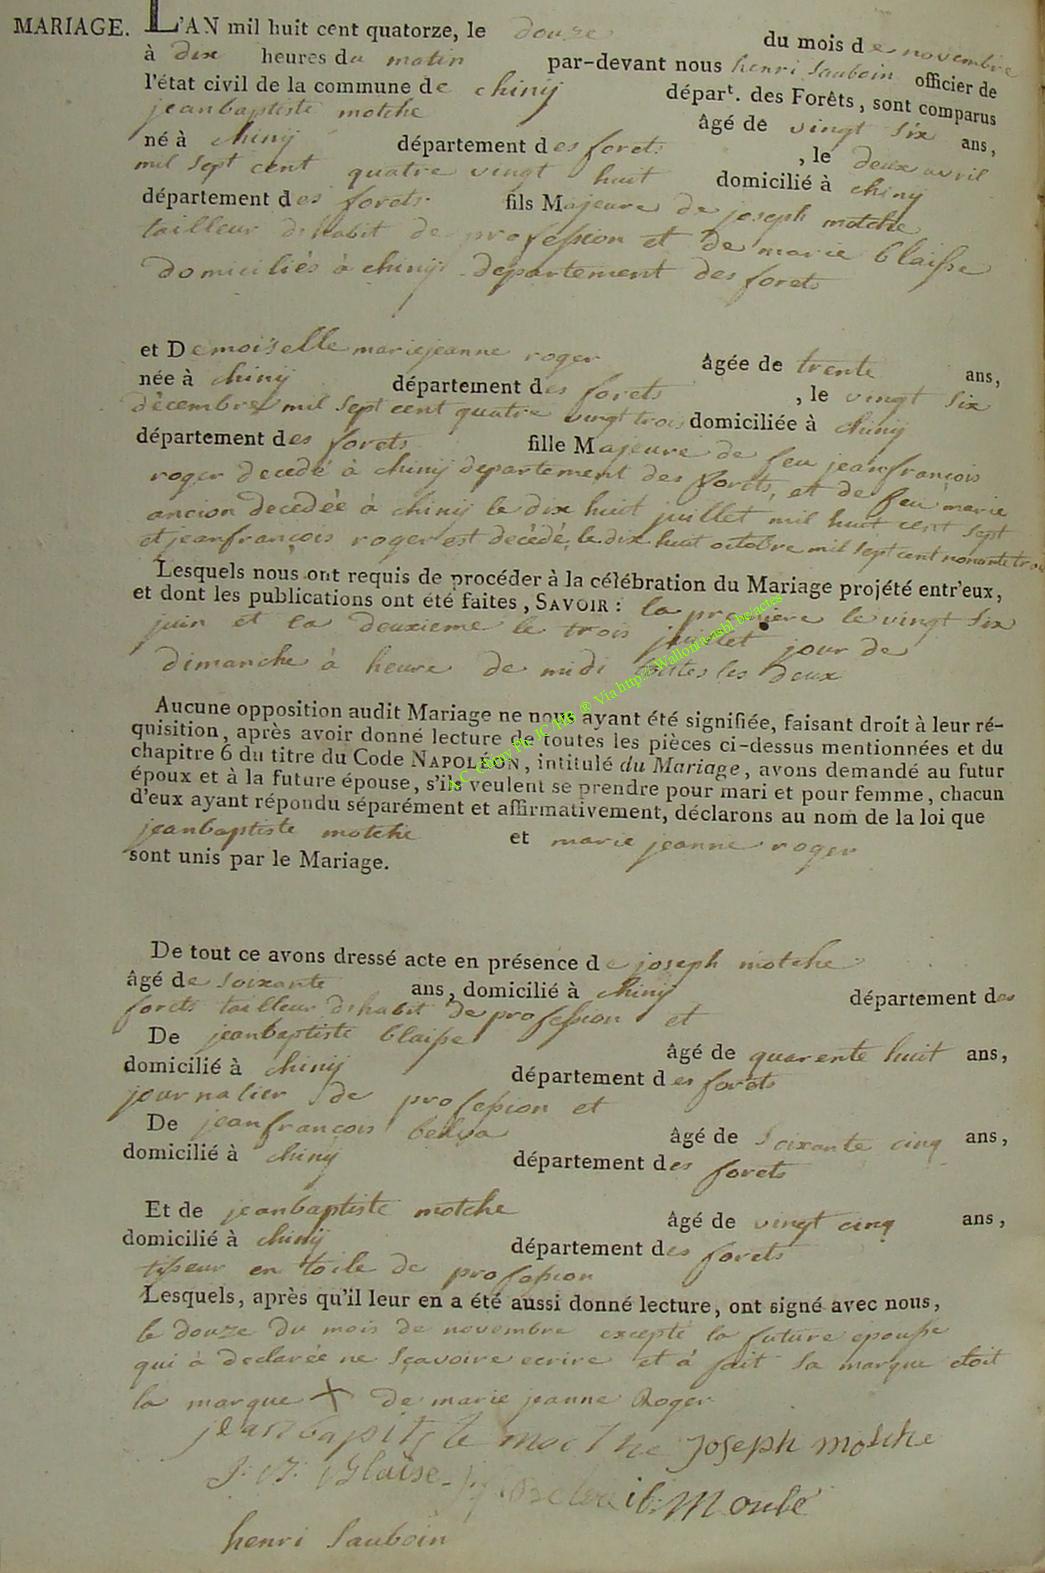 MARIAGE. L'AN mil huit cent quatorze, le douze du mois de novembre
à dix heures du matin par-devant nous henri sauboin officier de
l'état civil de la commune de chinij départ. des Forêts, sont comparus
jeanbaptiste motche âgé de vingt six ans,
né à chinij département des forets , le deux avril
mil sept cent quatre vingt huit domicilié à chinij
département des forets fils Majeure de joseph motche
tailleur dhabit de profession et de marie blaisse
domiciliés à chinij departement des forets
et Demoiselle mariejeanne roger âgée de trente ans,
née à chinij département des forets , le vingt six
décembre mil sept cent quatre vingt trois domiciliée à chinij
département des forets fille Majeure de feu jeanfrançois
roger decedé à chinij departement des forets, et de feu marie
ancion decedée à chinij le dix huit juillet mil huit cent sept
et jeanfrançois roger est decédé le dix huit octobre mil sept cent nonante trois
Lesquels nous ont requis de procéder à la célébration du Mariage projété entr'eux,
et dont les publications ont été faites, SAVOIR : la premiere le vingt six
juin et la deuxieme le trois juillet jour de
dimanche à heure de midi toutes les deux
Aucune opposition audit Mariage ne nous ayant été signifiée, faisant droit à leur ré-
quisition, après avoir donné lecture de toutes les pièces ci-dessus mentionnées et du
chapitre 6 du titre du Code NAPOLÉON, intitulé du Mariage, avons demandé au futur
époux et à la future épouse, s'ils veulent se prendre pour mari et pour femme, chacun
d'eux ayant répondu séparément et affirmativement, déclarons au nom de la loi que
jeanbaptiste motche et marie jeanne roger
sont unis par le Mariage.
De tout ce avons dressé acte en présence de joseph motche
âgé de soixante ans, domicilié à chinij département des
forets tailleur dhabit de profession et
De jeanbaptiste blaisse âgé de quarente huit ans,
domicilié à chinij département des forets
journalier de profession et
De jeanfrançois âgé de soixante cinq ans,
domicilié à chinij département des forets
Et de jeanbaptiste motche âgé de vingt cinq ans,
domicilié à chinij département des forets
tisseur en toile de profession
Lesquels, après qu'il leur en a été aussi donné lecture, ont signé avec nous,
le douze du mois de novembre excepté la future epousse
qui à declarée ne sçavoire ecrire et à fait sa marque etoit
la marque X de marie jeanne Roger
joseph motche
blaise
henri sauboin